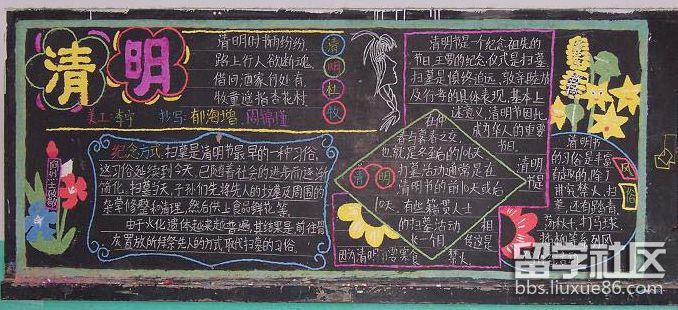 清明
清明时节雨纷纷,
路上行人欲断魂。
借问酒家何处有,
牧童遥指杏花村。
清
明
杜
牧
美工:李宁 抄写:郁海增、周锦瑾
纪念方式:扫墓是清明节最早的一种习俗,
这习俗延续到今天,已随着社会的进步而逐渐
简化。扫墓当天,子孙们先将先人的坟墓及周围的
杂草修整和清理,然后供上食品鲜花等。
由于火化遗体越来越普遍,其结果是前往骨
灰置放的拜祭先人的方式取代扫墓的习俗。
向烈士致敬
清明节是一个纪念祖先的
节日,主要的纪念仪式是扫墓,
扫墓是慎终追远、敦亲睦族
及行孝的具体表现,基本上
述意义,清明节因此
成为华人的重要
节日。
清明
在仲
春与暮春之交,
也就是冬至后的106天。
扫墓活动通常是在
清明节的前10天或后
10天。有些籍贯人士
的扫墓活动
长一个月
清明
节是
相
传这是
因为清明 要寒食 禁火
清明节
的习俗是丰富
有趣的,除了
讲究禁火、扫
墓,还有踏青、
荡秋千、打马球、
风
俗
留学社区
bbs.liuxue86.com